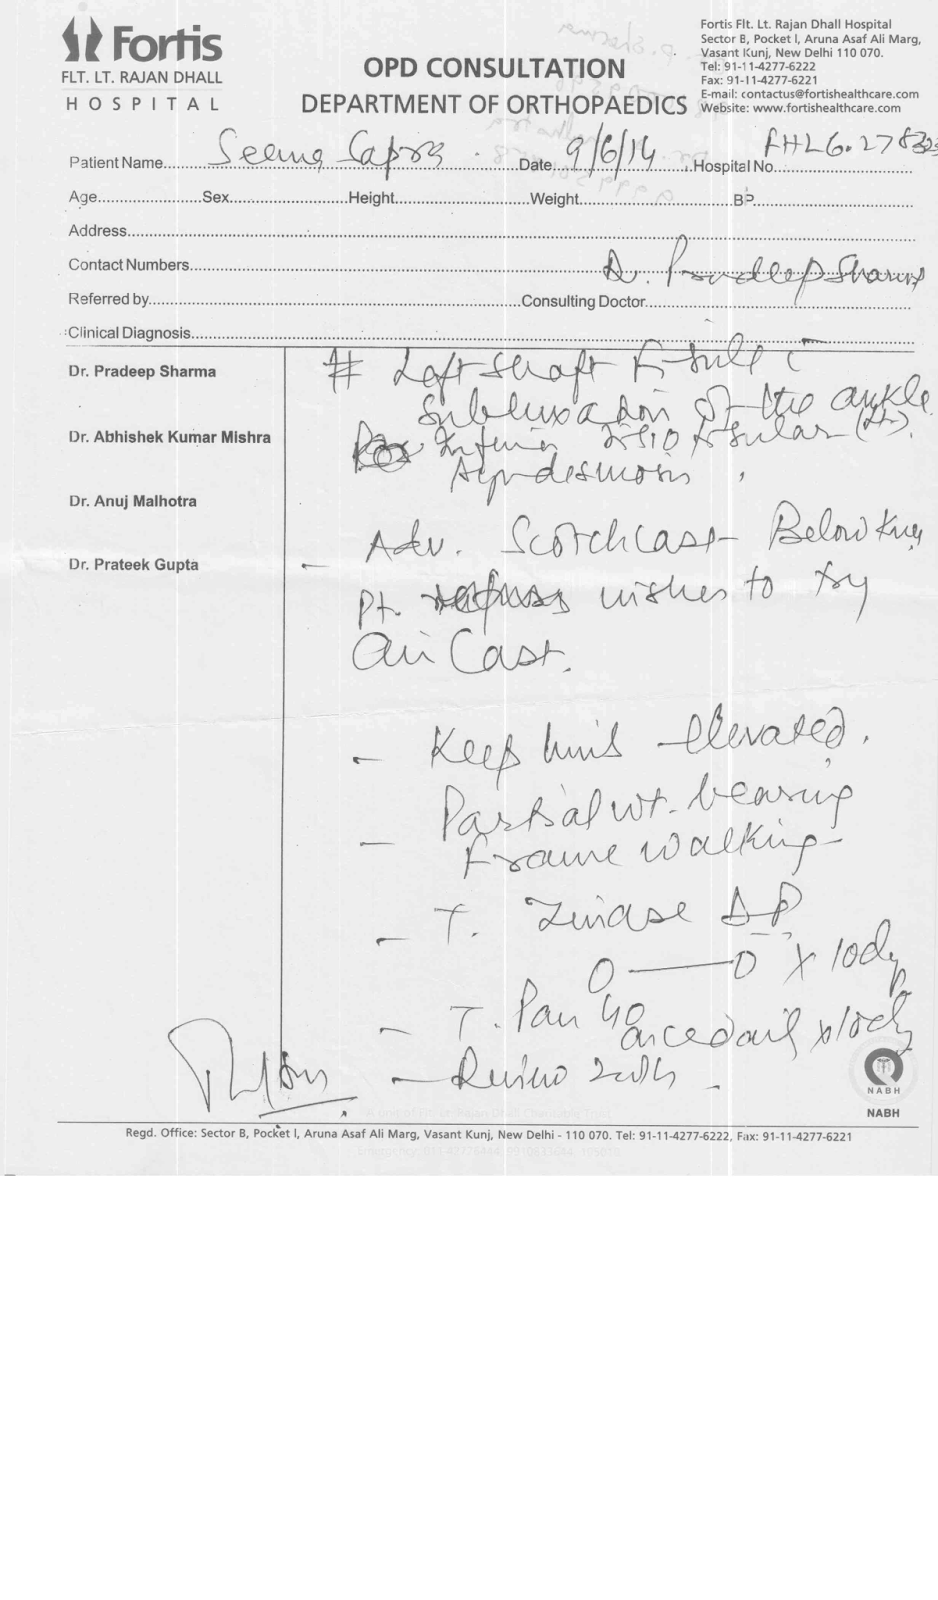 Fortis
FLT. LT. RAJAN DHALL
HOSPITAL
OPD CONSULTATION
DEPARTMENT OF ORTHOPAEDICS
Fortis Flt. Lt. Rajan Dhall Hospital
Sector B, Pocket I, Aruna Asaf Ali Marg,
Vasant Kunj, New Delhi 110 070.
Tel: 91-11-4277-6222
Fax: 91-11-4277-6221
E-mail: contactus@fortishealthcare.com
Website: www.fortishealthcare.com
Patient Name Seema Date 9/6/14 Hospital No.
Age Sex Height Weight BP
Address
Contact Numbers
Dr. Pradeep Sharma
Referred by Consulting Doctor
Clinical Diagnosis
Dr. Pradeep Sharma
Dr. Abhishek Kumar Mishra
Dr. Anuj Malhotra
Dr. Prateek Gupta
# Left shaft
subluxation of the ankle
Inferior
syndesmosis
Adv. Scotchcast Below Knee
- Pt. wishes to try
Air Cast.
- Keep limb elevated.
- Partial wt. bearing
Frame walking
- T. DP
0——0 x 10
- T. Pan 40
once daily x 10
- Review
NABH
NABH
Regd. Office: Sector B, Pocket I, Aruna Asaf Ali Marg, Vasant Kunj, New Delhi - 110 070. Tel: 91-11-4277-6222, Fax: 91-11-4277-6221